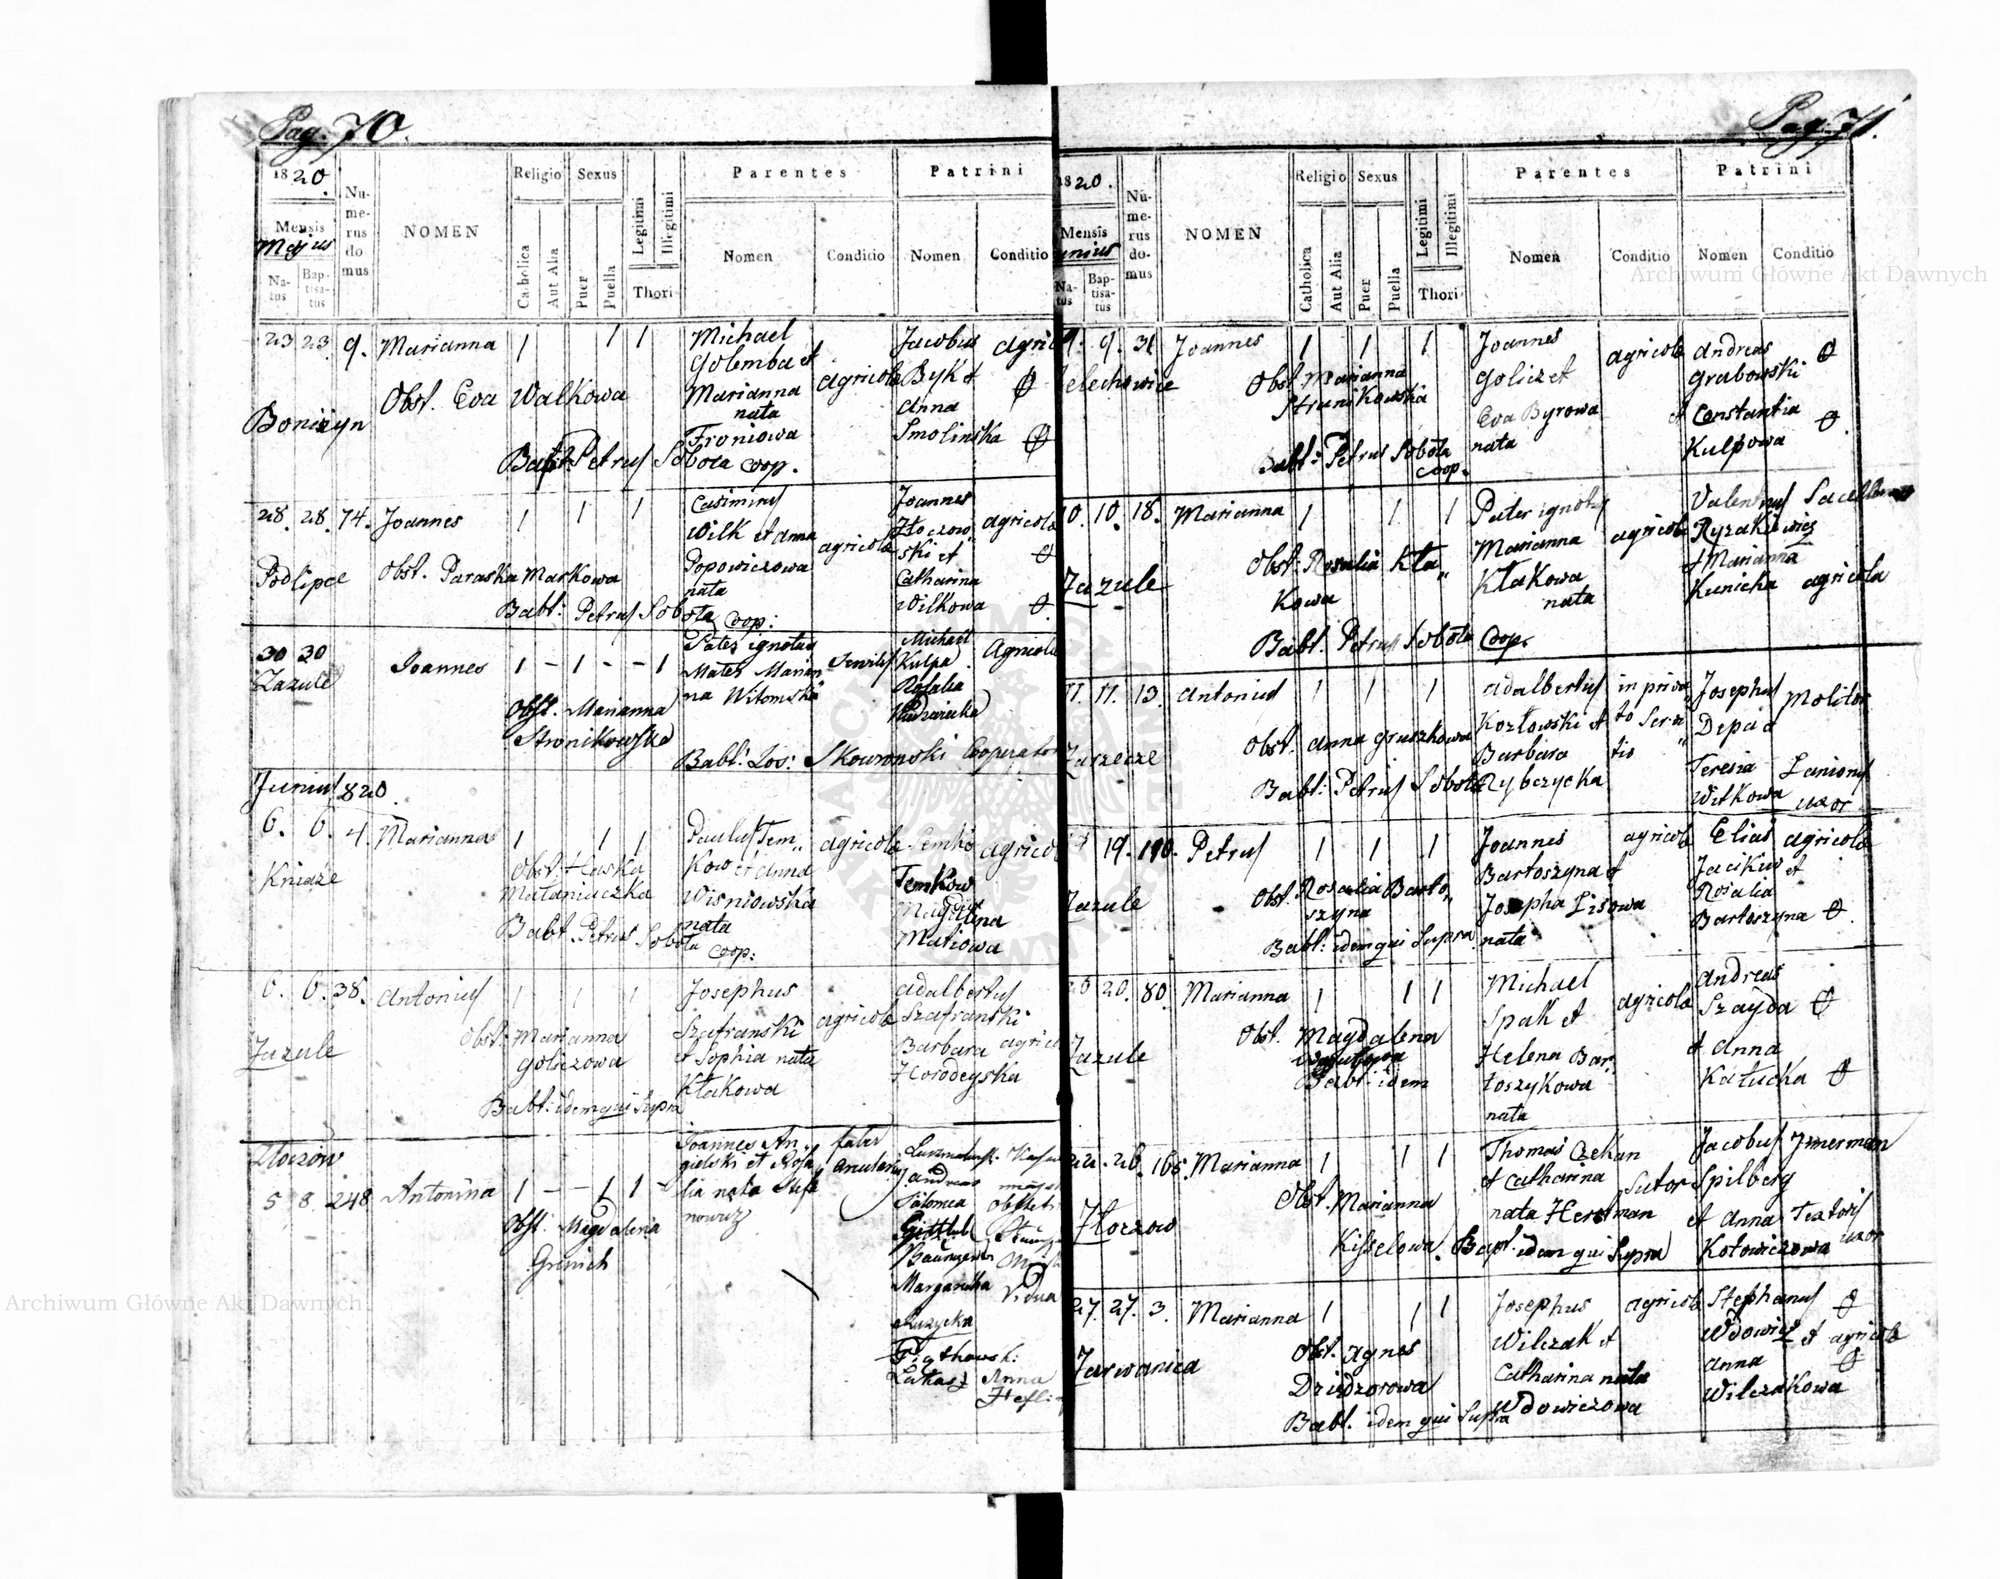 Pag. 70.
1820.
Mensis
Majus
Natus
Baptisatus
Numerus domus
NOMEN
Religio
Catholica
Aut Alia
Sexus
Puer
Puella
Legitimi
Illegitimi
Thori
Parentes
Nomen
Conditio
Patrini
Nomen
Conditio
23 23 9. Marianna 1 1 1
Bonizyn
Obst. Eva Walkowa
Bapt Petrus Sobota coop.
Michael
Golemba et
Marianna
nata
Froniowa
agricola
Jacobus
Byk et
Anna
Smolinska
28. 28. 74. Joannes 1 1 1
Podlipce
Obst. Paraska Markowa
Babt: Petrus Sobota coop:
Casimirus
Wilk et Anna
Popowiczowa
nata
agricola
Joannes
Złoczow
ski et
Catharina
Wilkowa
agricola
30 30
Zazule
Joannes 1 - 1 - - 1
Obst. Marianna
Stronikowska
Pater ignotus
Mater Marian
na Witomska
Michael
Kulpa
Rosalia
Babt: Jos: Skowronski Cooperator
Junius 820.
6. 6. 4. Marianna 1 1 1
Kniaze
Obst. Haska
Mataniaczka
Babt. Petrus Sobota
coop:
Paulus Tem„
Kow et Anna
Wisniowska
nata
agricola
Semko
Temkow
Magdalena
Matiowa
6. 6. 38. Antonius 1 1 1
Zazule
Obst. Marianna
Goliczowa
Babt: idem qui Supra
Josephus
Szafranski
et Sophia nata
Kłakowa
agricola
Adalbertus
Szafranski
Barbara
Horodeyska
Złoczow
5 8. 248 Antonina 1 - - 1 1 -
Obst: Magdalena
Grenich
Joannes An
gielski et Rosa
lia nata Stefa
nowicz
faber
Andreas
Salomea
Margaretha
Ruzycka
Piątkowski
Łukasz Anna
Vidua
Pag. 71.
1820.
Mensis
Junius
Natus
Baptisatus
Numerus domus
NOMEN
Religio
Catholica
Aut Alia
Sexus
Puer
Puella
Legitimi
Illegitimi
Thori
Parentes
Nomen
Conditio
Patrini
Nomen
Conditio
9. 9. 31 Joannes 1 1 1
Obst. Marianna
Strunikowska
Babt: Petrus Sobota
coop.
Joannes
Golicz et
Eva Byrowa
nata
agricola
Andreas
Grabowski
et Constantia
Kulpowa
10. 10. 18. Marianna 1 1 1
Zazule
Obst: Rosalia Kła„
Kowa
Babt. Petrus Sobota Coop.
Pater ignotus
Marianna
Kłakowa
nata
agricola
Marianna
Kunicka agricola
11. 11. 13. Antonius 1 1 1
Zarzecze
Obst. Anna Gruszkowa
Babt: Petrus Sobota
Adalbertus
Kozłowski et
Barbara
Rybczycka
in priva„
to Servi„
tio
Josephus
Depa
Teresia
Witkowa
Molitor
Lanionis
uxor
19. 110. Petrus 1 1 1
Zazule
Obst. Rosalia Barto„
szyna
Babt: idem qui Supra
Joannes
Bartoszyna et
Josepha Lisowa
nata
agricola
Elias
Jacikow et
Rosalia
Bartoszyna
agricola
20 20. 80. Marianna 1 1 1
Zazule
Obst. Magdalena
Babt: idem
Michael
Spak et
Helena Bar„
toszykowa
nata
agricola
Andreas
Szayda
et Anna
Kałucka
22. 26. 165. Marianna 1 1 1
Złoczow
Obst. Marianna
Kisselowa. Bapt. idem qui Supra
Thomas Czekan
et Catharina
nata Herstman
Sutor
Jacobus
Spilberg
et Anna
Kotowiczowa
Textoris
uxor
27. 27. 3. Marianna 1 1 1
Zarwanica
Obst. Agnes
Dziedzorowa
Babt. idem qui Supra
Josephus
Wilczak et
Catharina nata
Wdowiczowa
agricola
Stephanus
Wdowicz et
Anna
Wilczakowa
agricola
Archiwum Główne Akt Dawnych
Archiwum Główne Akt Dawnych